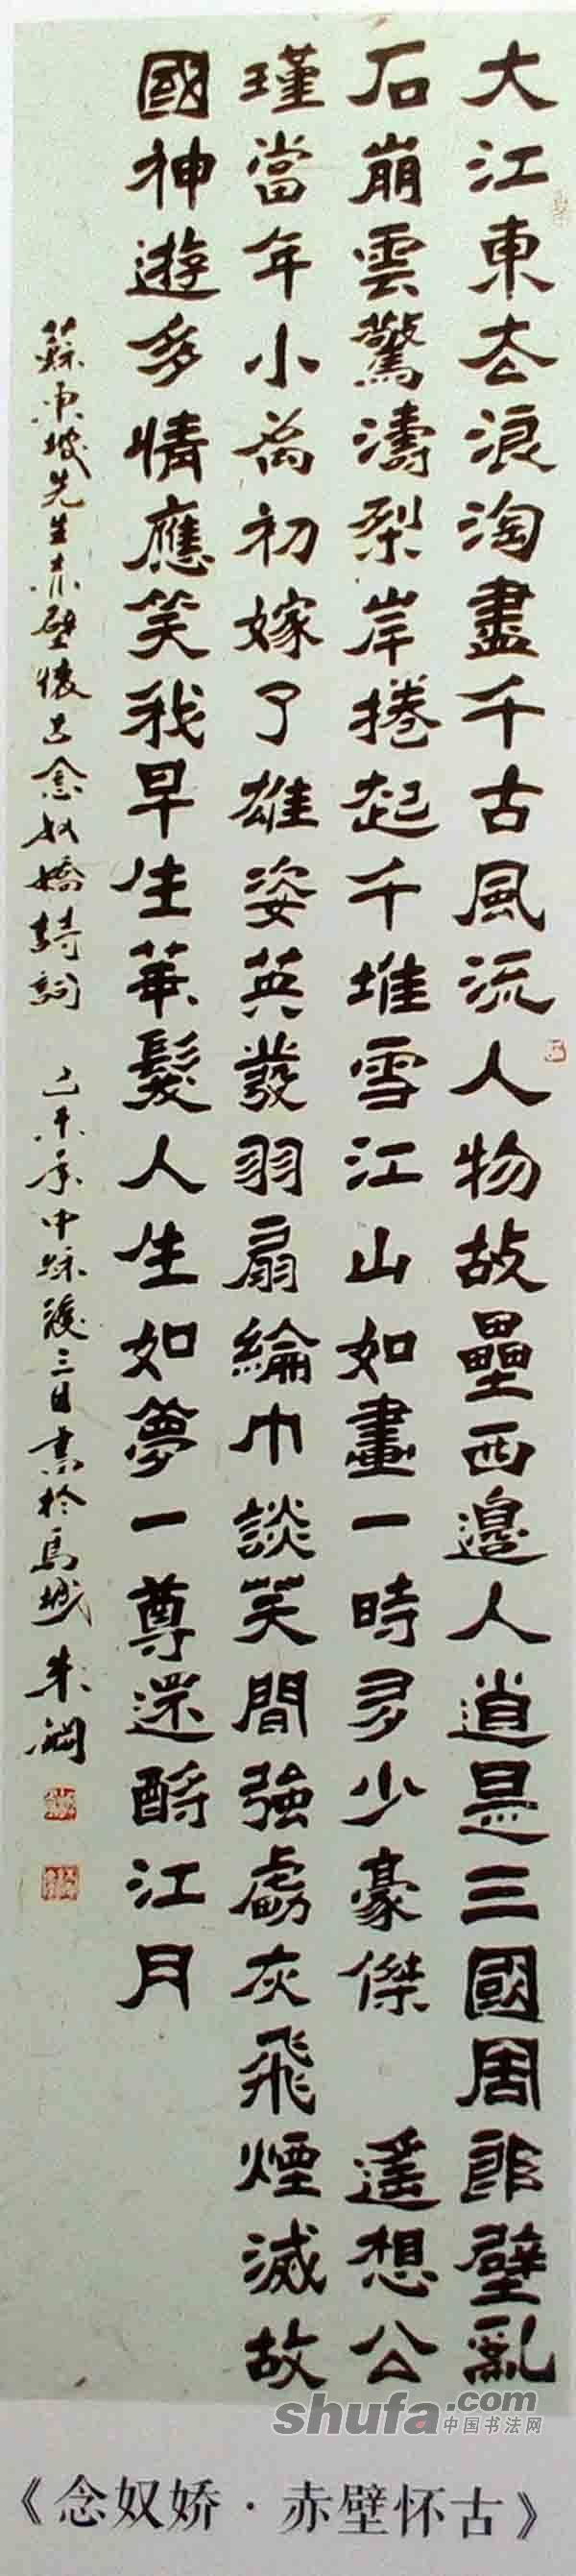 大江東去浪淘盡千古風流人物故壘西邊人道是三國周郎壁亂
石崩雲驚濤裂岸捲起千堆雪江山如畫一時多少豪傑 遥想公
瑾當年小喬初嫁了雄姿英發羽扇綸巾談笑間強虜灰飛煙滅故
國神遊多情應笑我早生華髮人生如夢一尊還酹江月
蘇東坡先生赤壁懷古念奴嬌詩詞 未年中秋後三日書於城 朱
shufa.com
中国书法网
《念奴娇·赤壁怀古》